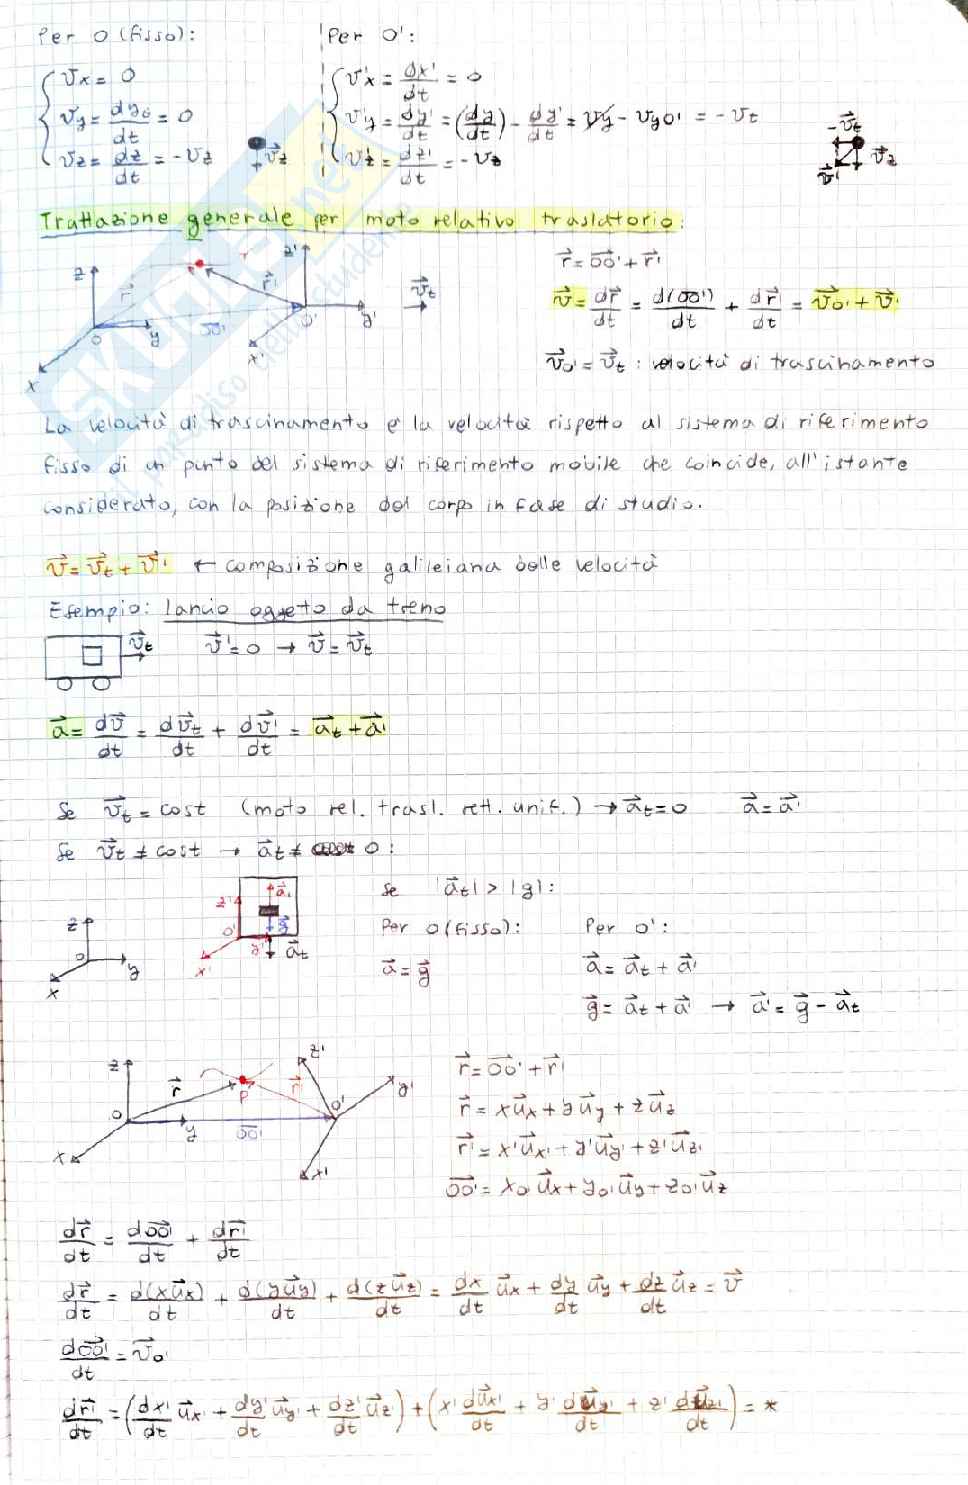 Per O (fisso):
Per O':
Vx = 0
V'x = dx'/dt = 0
Vy = dy/dt = 0
V'y = dy'/dt = (dy/dt) - dy'/dt = Vy - Vyo' = - Vt
Vz = dz/dt = - Vz
V'z = dz'/dt = - Vz
Vz
- Vt
Vz
V'
Trattazione generale per moto relativo traslatorio:
z
r
O
y
x
OO'
z'
r'
O'
y'
x'
Vt
r = OO' + r'
V = dr/dt = d(OO')/dt + dr/dt = Vo' + V'
Vo' = Vt : velocità di trascinamento
La velocità di trascinamento è la velocità rispetto al sistema di riferimento
fisso di un punto del sistema di riferimento mobile che coincide, all'istante
considerato, con la posizione del corpo in fase di studio.
V = Vt + V' ← composizione galileiana delle velocità
Esempio: lancio oggeto da treno
Vt
V' = 0 → V = Vt
a = dV/dt = dVt/dt + dV'/dt = at + a'
Se Vt = cost (moto rel. trasl. rett. unif.) → at = 0 a = a'
Se Vt ≠ cost → at ≠ 0:
z
O
y
x
z'
O'
y'
x'
g
at
Se |at| > |g|:
Per O (fisso):
Per O':
a = g
a = at + a'
g = at + a' → a' = g - at
z
r
P
r'
z'
y'
O
y
OO'
O'
x
x'
r = OO' + r'
r = x ux + y uy + z uz
r' = x' ux' + y' uy' + z' uz'
OO' = xo' ux + yo' uy + zo' uz
dr/dt = dOO'/dt + dr'/dt
dr/dt = d(x ux)/dt + d(y uy)/dt + d(z uz)/dt = dx/dt ux + dy/dt uy + dz/dt uz = V
dOO'/dt = Vo'
dr'/dt = (dx'/dt ux' + dy'/dt uy' + dz'/dt uz') + (x' dux'/dt + y' duy'/dt + z' duz'/dt) = *